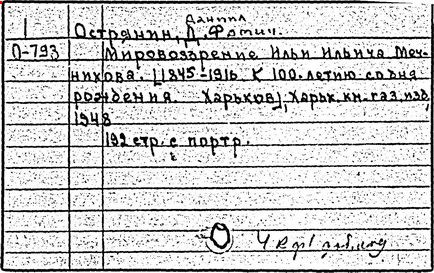 Даниил
1 Острянин, Д. Фомич.
О-793 Мировоззрение Ильи Ильича Меч-
никова. [1845-1916. К 100-летию со дня
рождения. Харьков], Харьк. кн.-газ. изд,
1948
192 стр. с портр.